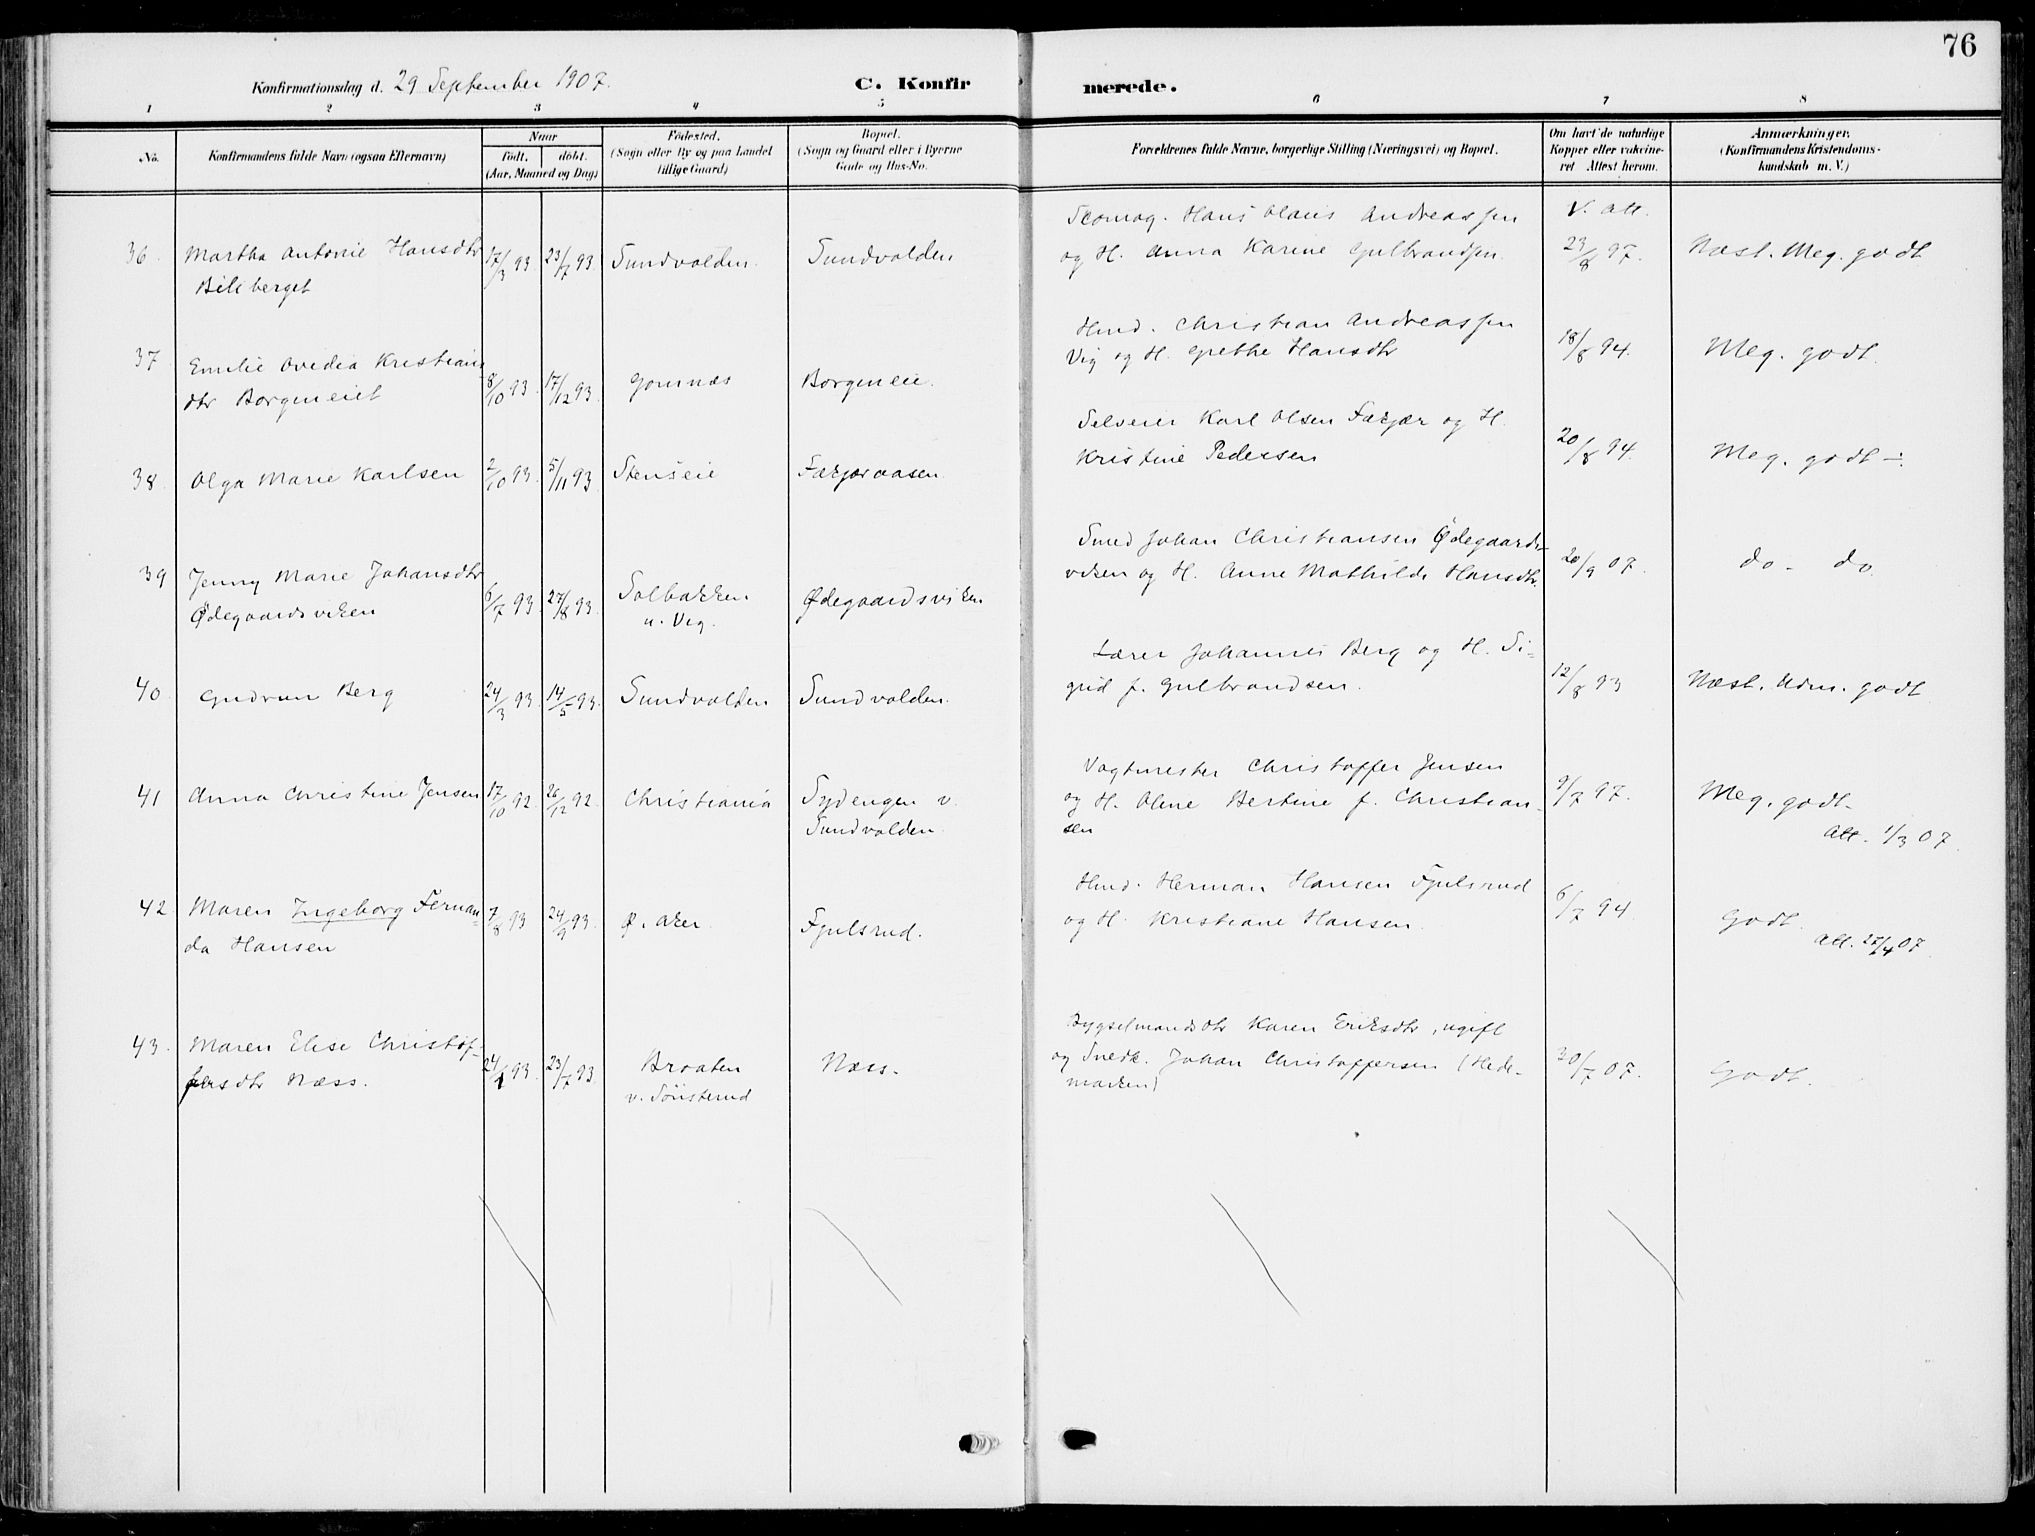 76
Konfirmationsdag d. 29 September 1907.
C. Konfirmerede.
1 2 3 4 5 6 7 8
No.
Konfirmandens fulde Navn (ogsaa Efternavn)
Naar
født. døbt.
(Aar, Maaned og Dag)
Fødested.
(Sogn eller By og paa Landet
tillige Gaard)
Bopæl.
(Sogn og Gaard eller i Byerne
Gade og Hus-No.
Forældrenes fulde Navne, borgerlige Stilling (Næringsvei) og Bopæl.
Om havt de naturlige
Kopper eller vakcine-
ret Attest herom.
Anmærkninger.
(Konfirmandens Kristendoms-
kundskab m. V.)
36. Martha Antonie Hansdtr
Bileberget
17/3 93 23/7 93. Sundvolden. Sundvolden
Skomag. Hans Olaus Andreassen
og H. Anna Karine Gulbrandsen.
V. att.
23/8 97. Næst. Meg. godt
37 Emilie Ovidia Kristians
dtr Borgeneiet
8/10 93 17/12 93. Gomnæs Borgeneie.
Hmd. Christian Andreassen
Vig og H. Grethe Hansdtr
18/8 94. Meg. godt.
38. Olga Marie Karlsen
2/10 93. 5/11 93 Stenseie Færjøraasen.
Selveier Karl Olsen Færjør og H.
Kristine Pedersen
20/8 94. Meg. godt ÷.
39 Jenny Marie Johansdtr
Ødegaardsviken
6/7 93 27/8 93. Solbakken
u. Vig. Ødegaardsviken
Smed Johan Christiansen Ødegaards-
viken og H. Anne Mathilde Hansdtr.
20/9 07. do - do.
40. Gudrun Berg
24/3 93. 14/5 93. Sundvolden Sundvolden.
Lærer Johannes Berg og H. Si-
grid f. Gulbrandsen.
12/8 93 Næst. Udm. godt
41 Anna Christine Jensen
17/10 92. 26/12 92. Christiania Sydengen v.
Sundvolden.
Vagtmester Christoffer Jensen
og H. Oline Bertine f. Christian-
sen
9/7 97. Meg. godt.
Att. 1/3 07.
42. Maren Ingeborg Fernan-
da Hansen
7/8 93 24/9 93. Ø. Aker. Fjulsrud.
Hmd. Herman Hansen Fjulsrud
og H. Kristiane Hansen.
6/7 94. Godt.
Att. 27/4 07.
43. Maren Elise Christof-
fersdtr Næss.
24/1 93. 23/7 93. Braaten
v. Sønsterud Næss.
Bygselmandsdtr Karen Eriksdtr, ugift
og Snedk. Johan Christoffersen (Hede-
marken)
30/7 07. Godt.